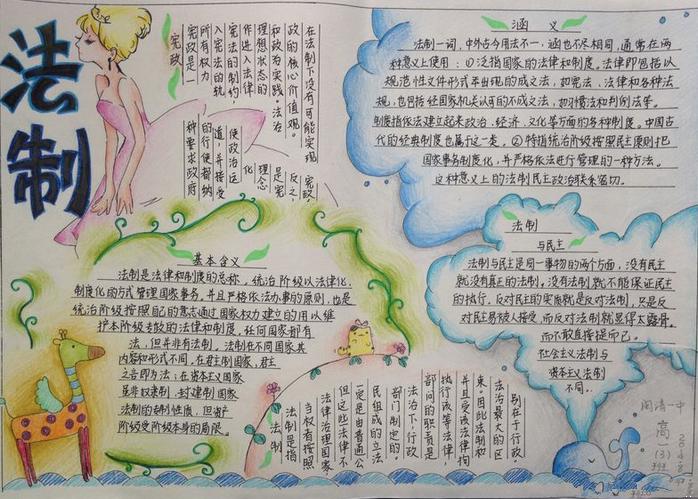 法制
宪政
宪政是一
种要求政府
所有权力
的行使都纳
入宪法的轨
道，并接受
宪法的制约，
使政治运
作进入法律
化
理想状态的
理念
和政为实践。法治
是宪
政的核心价值观。
反之，
在法制下没有可能实现
宪政。
涵义
法制一词，中外古今用法不一，涵也不尽相同，通常在两
种意义上使用：①泛指国家的法律和制度。法律即包括以
规范性文件形式平出现的成文法，如宪法、法律和各种法
规，也包括经国家机关认可的不成文法，如习惯法和判例法等。
制度指依法建立起来政治、经济、文化等方面的各种制度。中国古
代的经典制度也属于这一类。②特指统治阶级按照民主原则把
国家事务制度化，并严格依法进行管理的一种方法。
这种意义上的法制民主政治联系密切。
法制
与民主
法制与民主是同一事物的两个方面，没有民主
就没有真正的法制，没有法制就不能保证民主
的执行，反对民主的实质就是反对法制，只是反
对民主易被人接受，而反对法制就显得太露骨。
而不敢直接提而已。
社会主义法制与
资本主义法制
不同。
基本含义
法制是法律和制度的总称，统治阶级以法律化、
制度化的方式管理国家事务，并且严格依法办事的原则，也是
统治阶级按照自己的意志通过国家权力建立的用以维
护本阶级专政的法律和制度，任何国家都有
法，但并非有法制。法制在不同国家其
内容和形式不同，在君主制国家，君主
之言即为法；在资本主义国家
虽非权奴制，封建制国家
法制的专制性质，但资产
阶级受阶级本身的局限。
法制
法制是指
当权者按照
法律治理国家，
但这些法律不
一定是由普通公
民组成的立法
部门制定的。
法治下，行政
部门的职责是
执行该等法律，
并且受由该法律拘
束。因此法制和
法治最大的区
别在于行政。
闽清一中
高一
(3)
班